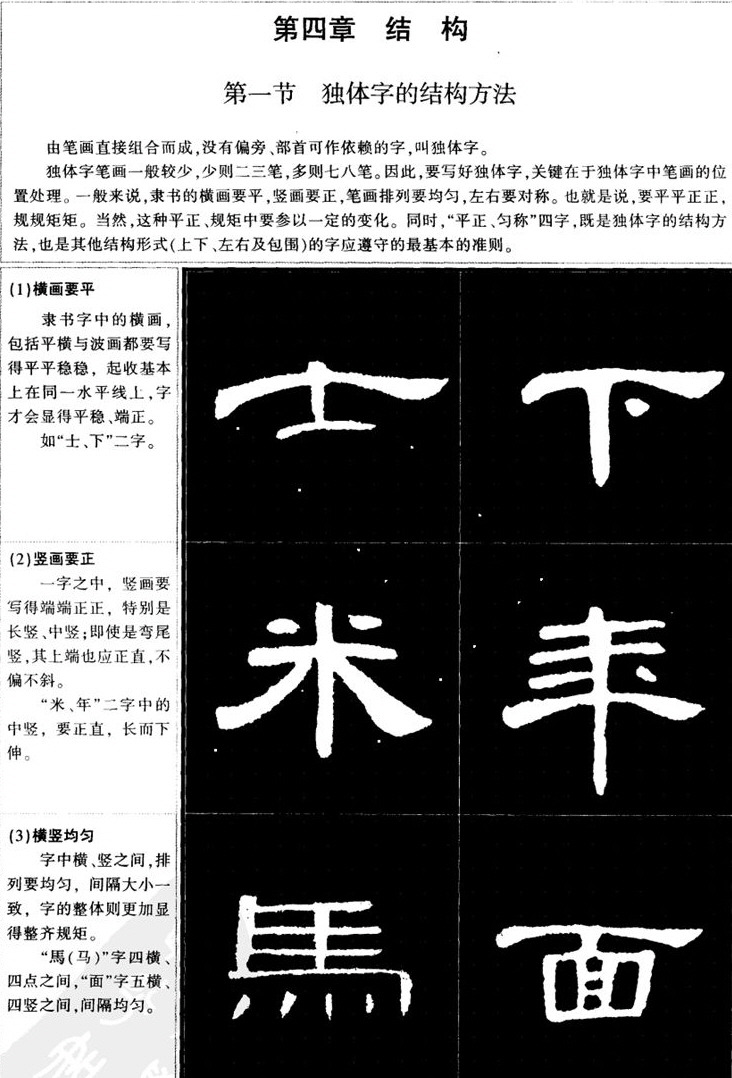 第四章　结　构
第一节　独体字的结构方法
由笔画直接组合而成,没有偏旁、部首可作依赖的字,叫独体字。
独体字笔画一般较少,少则二三笔,多则七八笔。因此,要写好独体字,关键在于独体字中笔画的位
置处理。一般来说,隶书的横画要平,竖画要正,笔画排列要均匀,左右要对称。也就是说,要平平正正,
规规矩矩。当然,这种平正、规矩中要参以一定的变化。同时,“平正、匀称”四字,既是独体字的结构方
法,也是其他结构形式(上下、左右及包围)的字应遵守的最基本的准则。
(1)横画要平
隶书字中的横画,
包括平横与波画都要写
得平平稳稳，起收基本
上在同一水平线上,字
才会显得平稳、端正。
如“士、下”二字。
士 下
(2)竖画要正
一字之中，竖画要
写得端端正正，特别是
长竖、中竖;即使是弯尾
竖,其上端也应正直,不
偏不斜。
“米、年”二字中的
中竖，要正直，长而下
伸。
米 年
(3)横竖均匀
字中横、竖之间,排
列要均匀，间隔大小一
致，字的整体则更加显
得整齐规矩。
“馬(马)”字四横、
四点之间,“面”字五横、
四竖之间,间隔均匀。
馬 面